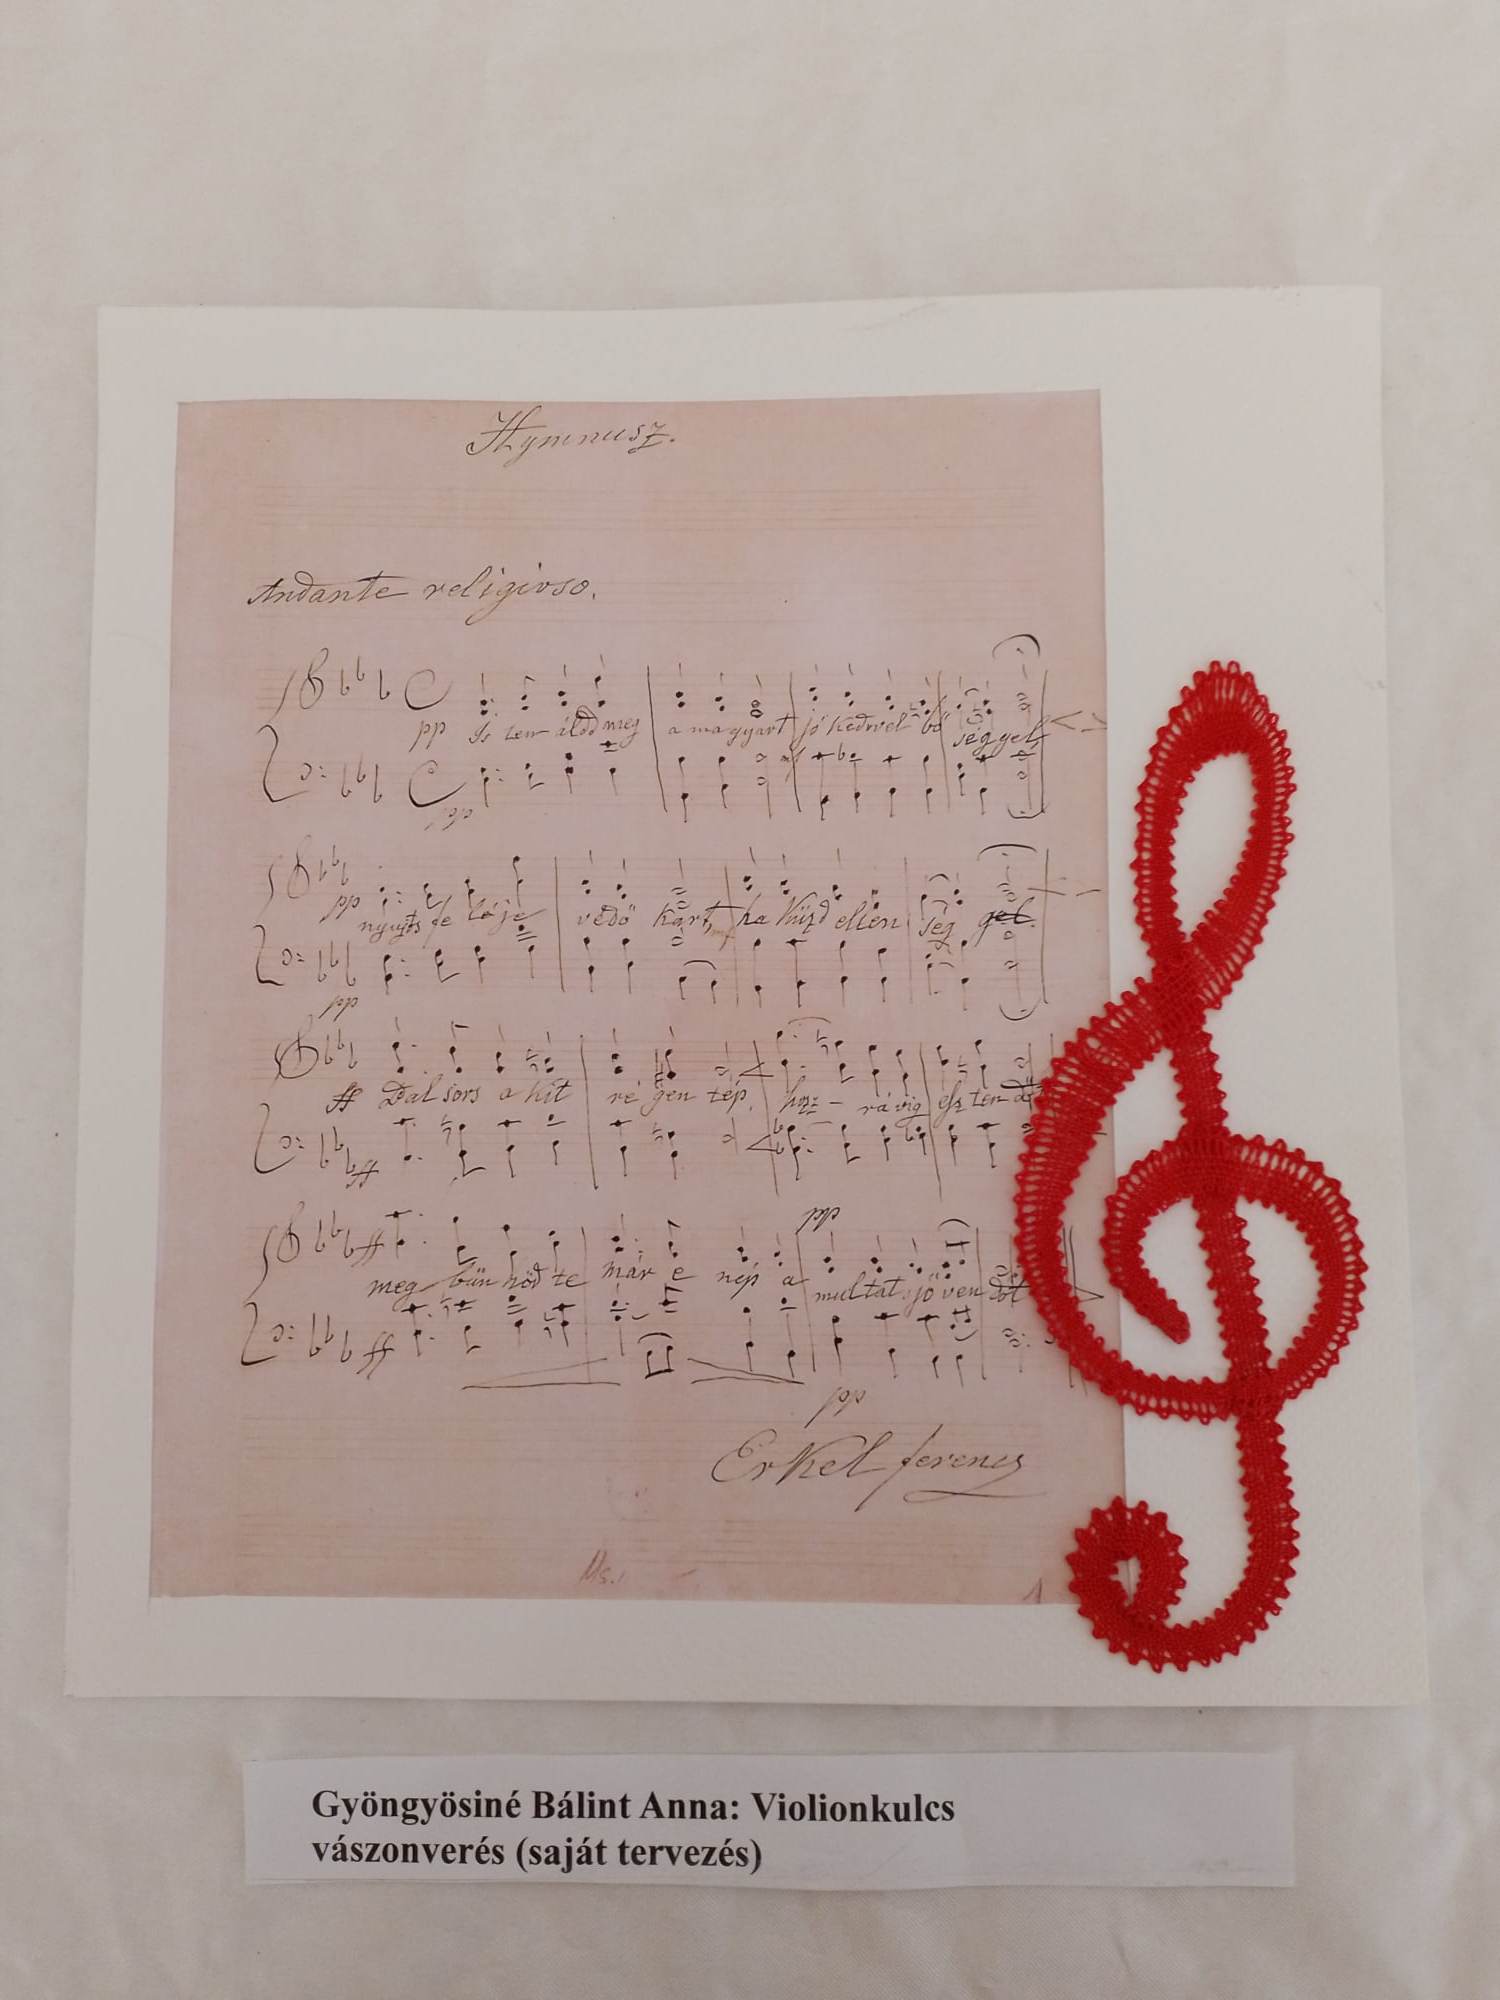 Hymnusz.
Andante religioso.
pp Is ten áldd meg a magyart jó kedvel bő séggel
pp
pp nyujts fe léje védő kart, ha küzd ellen ség gel.
pp
ff Bal sors a kit ré gen tép, hozz - rá vig esz ten dőt
ff
pp
ff meg bűn hőd te már e nép a multat s jöven dőt
ff
pp
Erkel ferencz
Ms. 1
Gyöngyösiné Bálint Anna: Violionkulcs
vászonverés (saját tervezés)